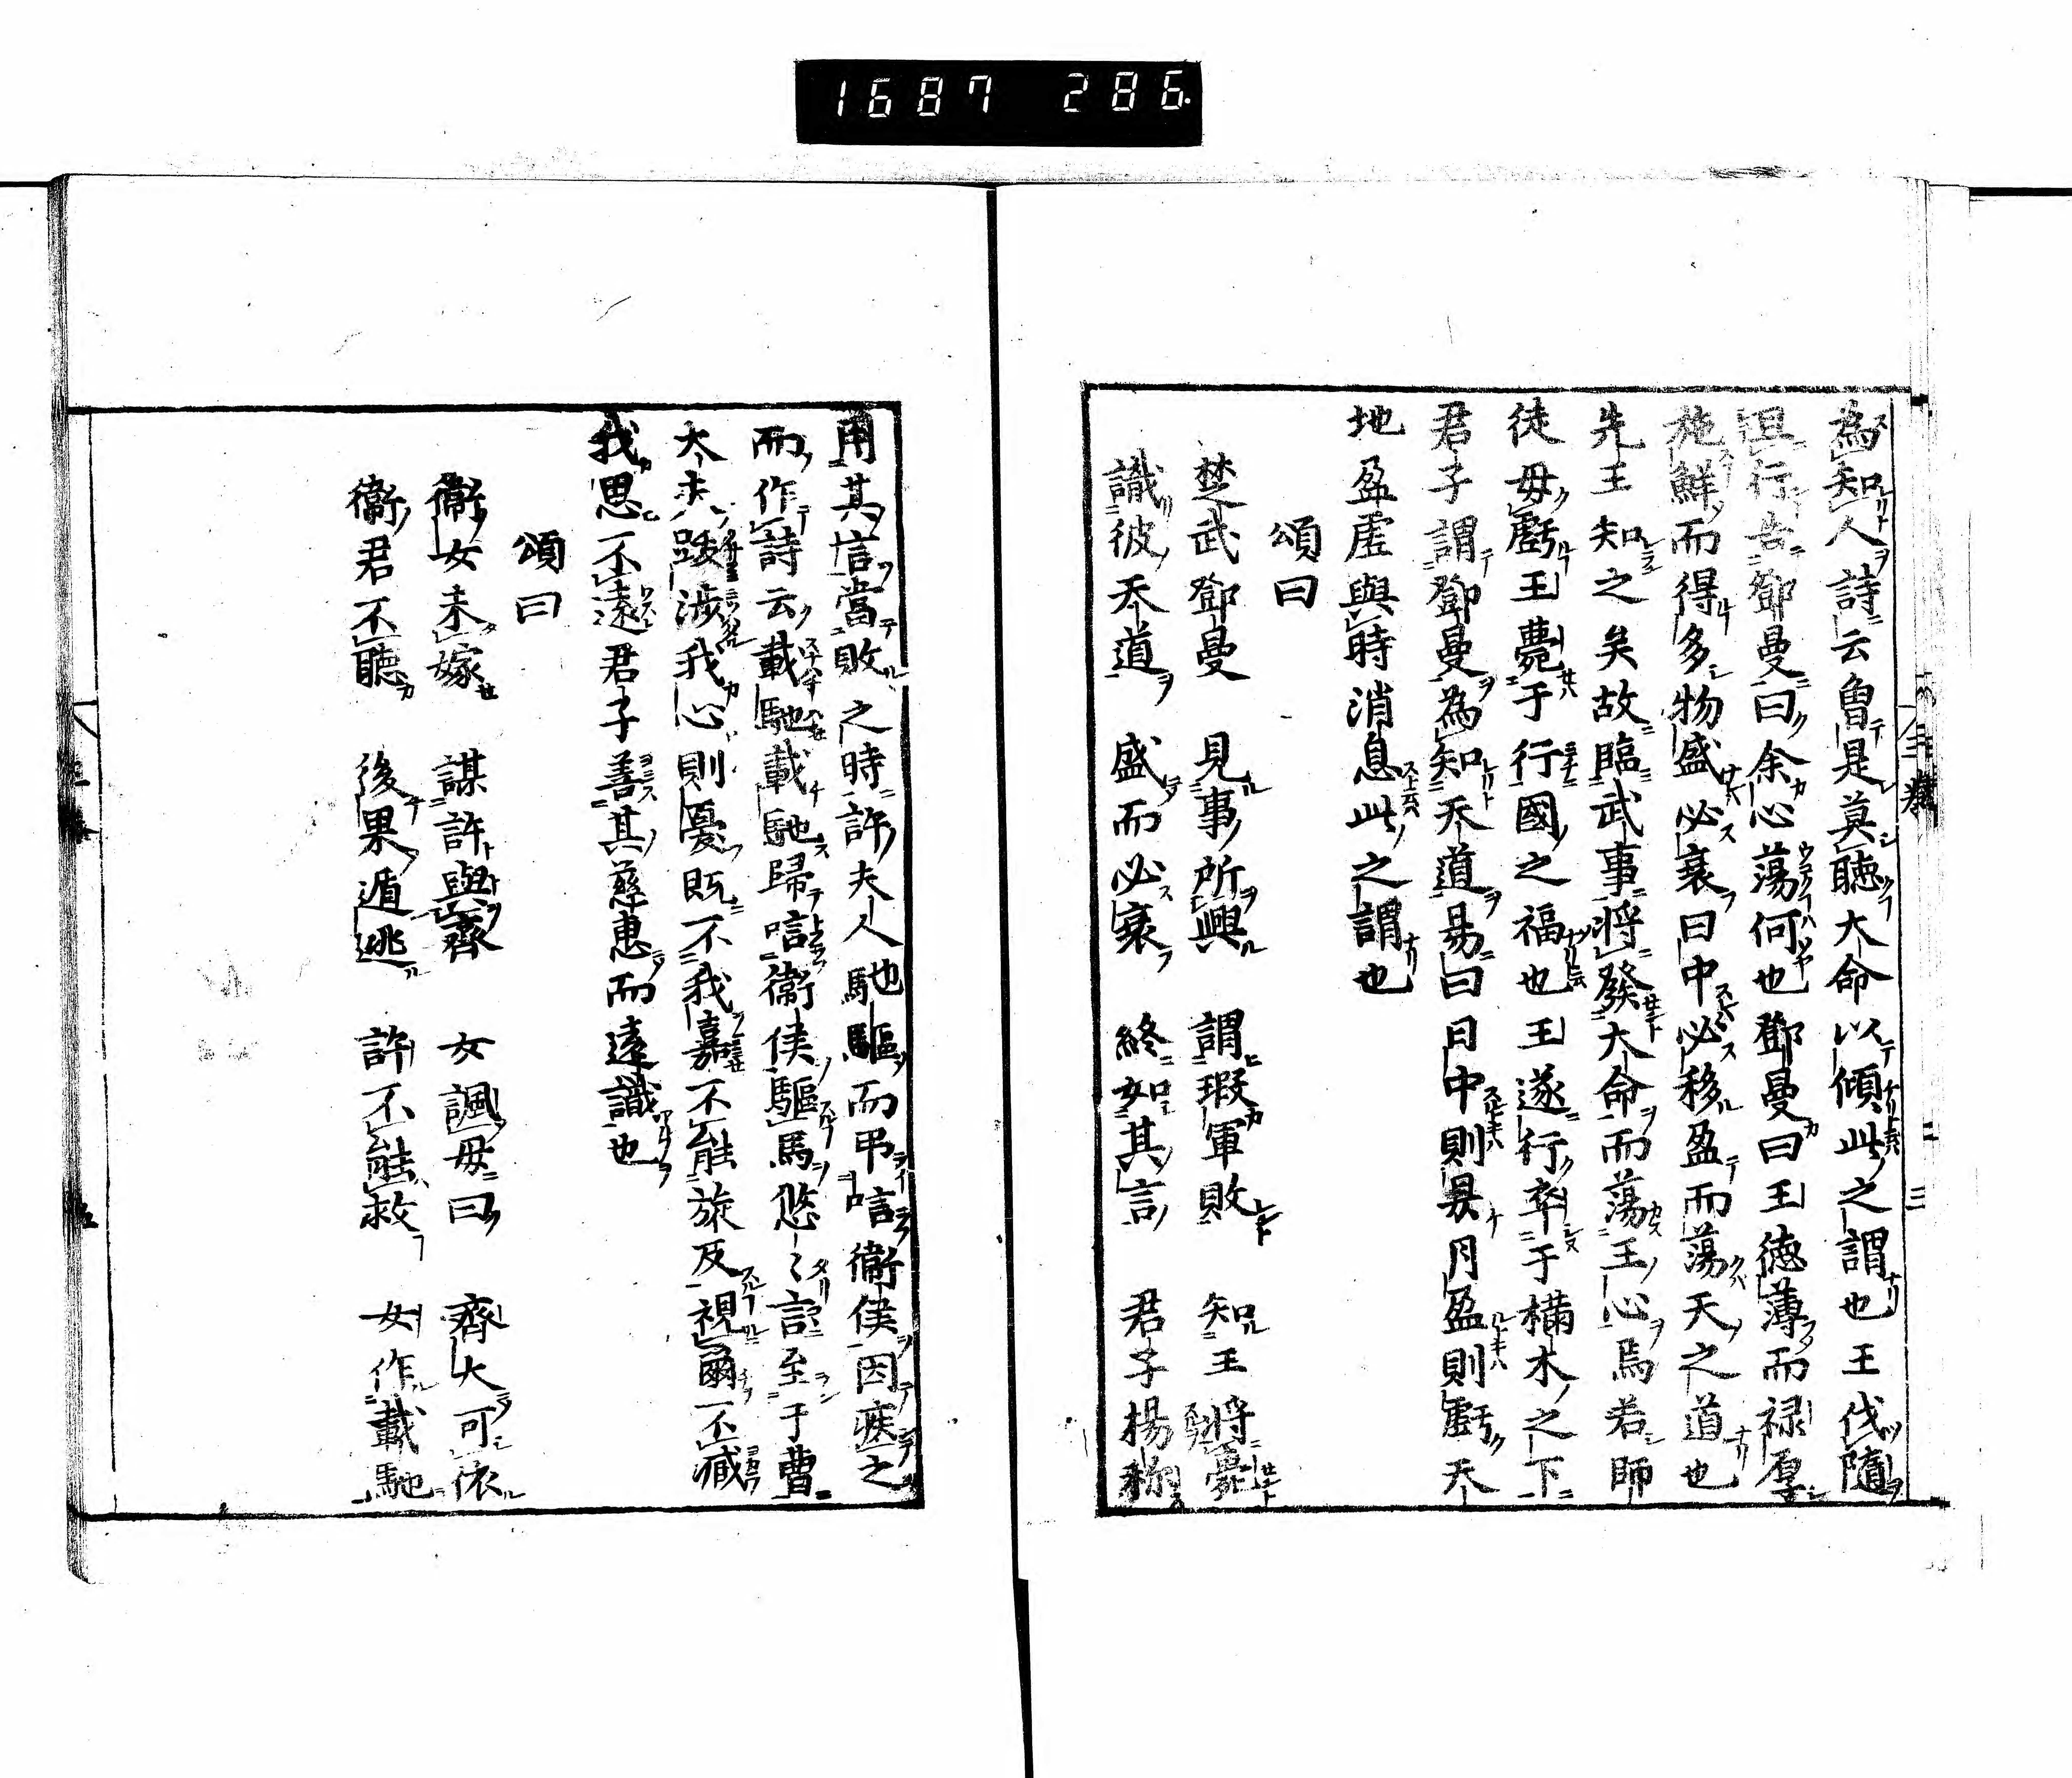 1687 286
為知人詩云魯是莫聽大命以傾此之謂也王伐隨
且行告鄧曼曰余心蕩何也鄧曼曰王德薄而禄厚
施鮮而得多物盛必衰日中必移盈而蕩天之道也
先王知之矣故臨武事將發大命而蕩王心焉若師
徒毋虧王薨于行國之福也王遂行卒于樠木之下
君子謂鄧曼為知天道易曰日中則昃月盈則虧天
地盈虛與時消息此之謂也
頌曰
楚武鄧曼 見事所興 謂瑕軍敗 知王將薨
識彼天道 盛而必衰 終如其言 君子揚稱
用其信當敗之時許夫人馳驅而弔唁衛侯因疾之
而作詩云載馳載馳歸唁衛侯驅馬悠〻言至于曹
大夫跋涉我心則憂既不我嘉不能旋反視爾不臧
我思不遠君子善其慈惠而遠識也
頌曰
衛女未嫁 謀許與齊 女諷母曰 齊大可依
衛君不聽 後果遁逃 許不能救 女作載馳